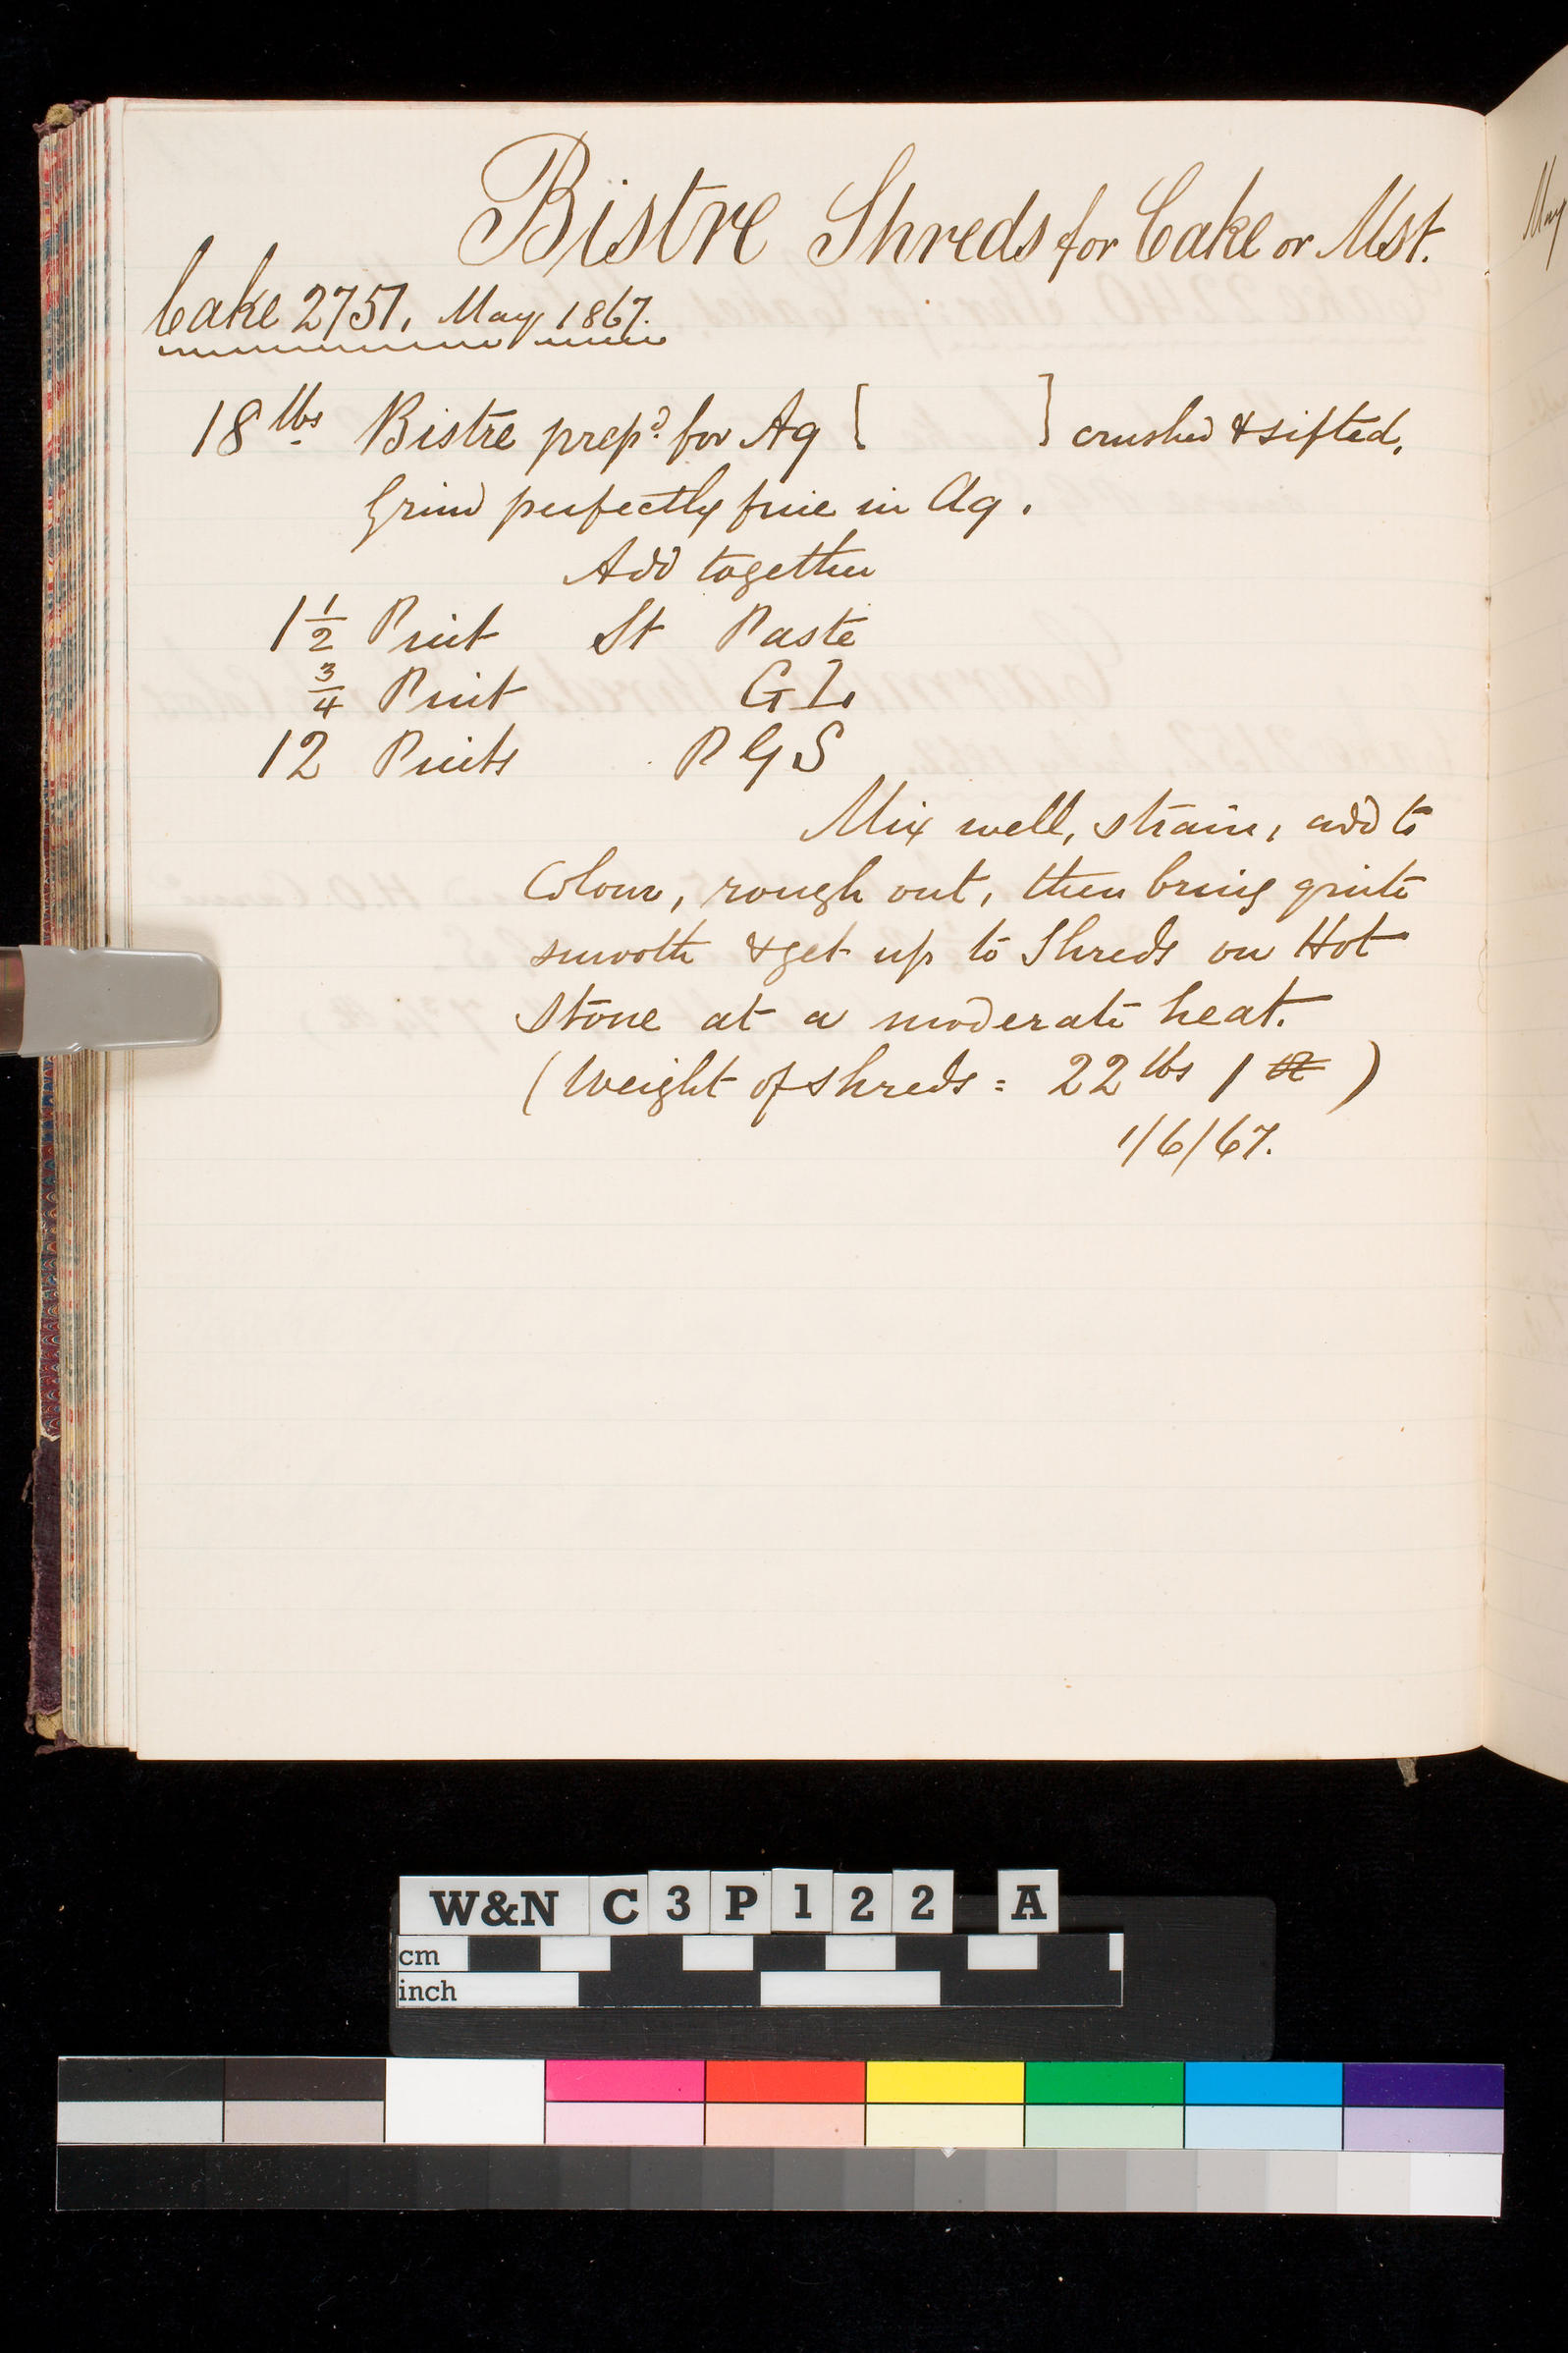 Bistre Shreds for Cake or Mst.
Cake 2751. May 1867.
18 lbs Bistre prepd. for Aq [ ] crushed & sifted.
Grind perfectly fine in Aq.
Add together
1 1/2 Pint St Paste
3/4 Pint G L
12 Pints P G S
Mix well, strain, add to
Colour, rough out, then bring quite
smooth & get up to Shreds on Hot
Stone at a moderate heat.
(Weight of shreds = 22 lbs 1 )
1/6/67.
May
W&N C3P122 A
cm
inch